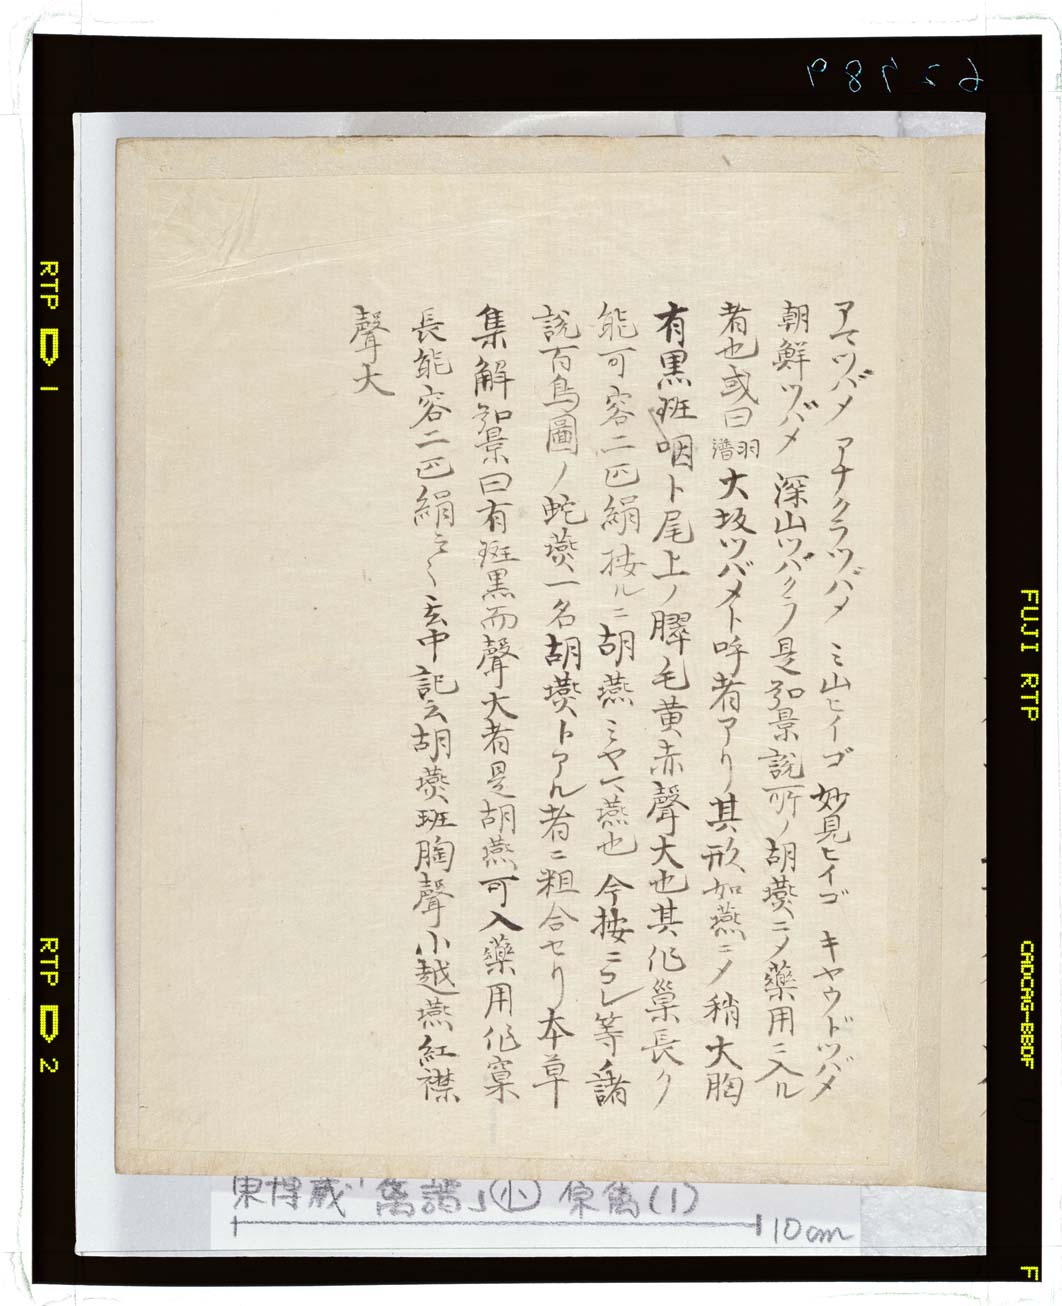 アマツバメ アナクラツバメ ミ山ヒイゴ 妙見ヒイゴ キヤウドツバメ
朝鮮ツバメ 深山ツバクラ是弘景説所ノ胡鷰ニメ藥用ニ入ル
者也或曰 大坂ツバメト呼者アリ其形如燕ニメ稍大胸
有黒斑咽ト尾上ノ膵毛黄赤聲大也其作巣長ク
能可容二匹絹按ルニ胡燕ミヤマ燕也今按ニコレ等ノ諸
説百鳥圖ノ蛇鷰一名胡鷰トアル者ニ粗合セリ本草
集解弘景曰有斑黒而聲大者是胡燕可入藥用作窠
長能容二匹絹云〻玄中記云胡鷰斑胸聲小越燕紅襟
聲大
東博蔵「禽譜」(小) 原禽(1)
10cm
62789
RTP 1
RTP 2
FUJI RTP
F